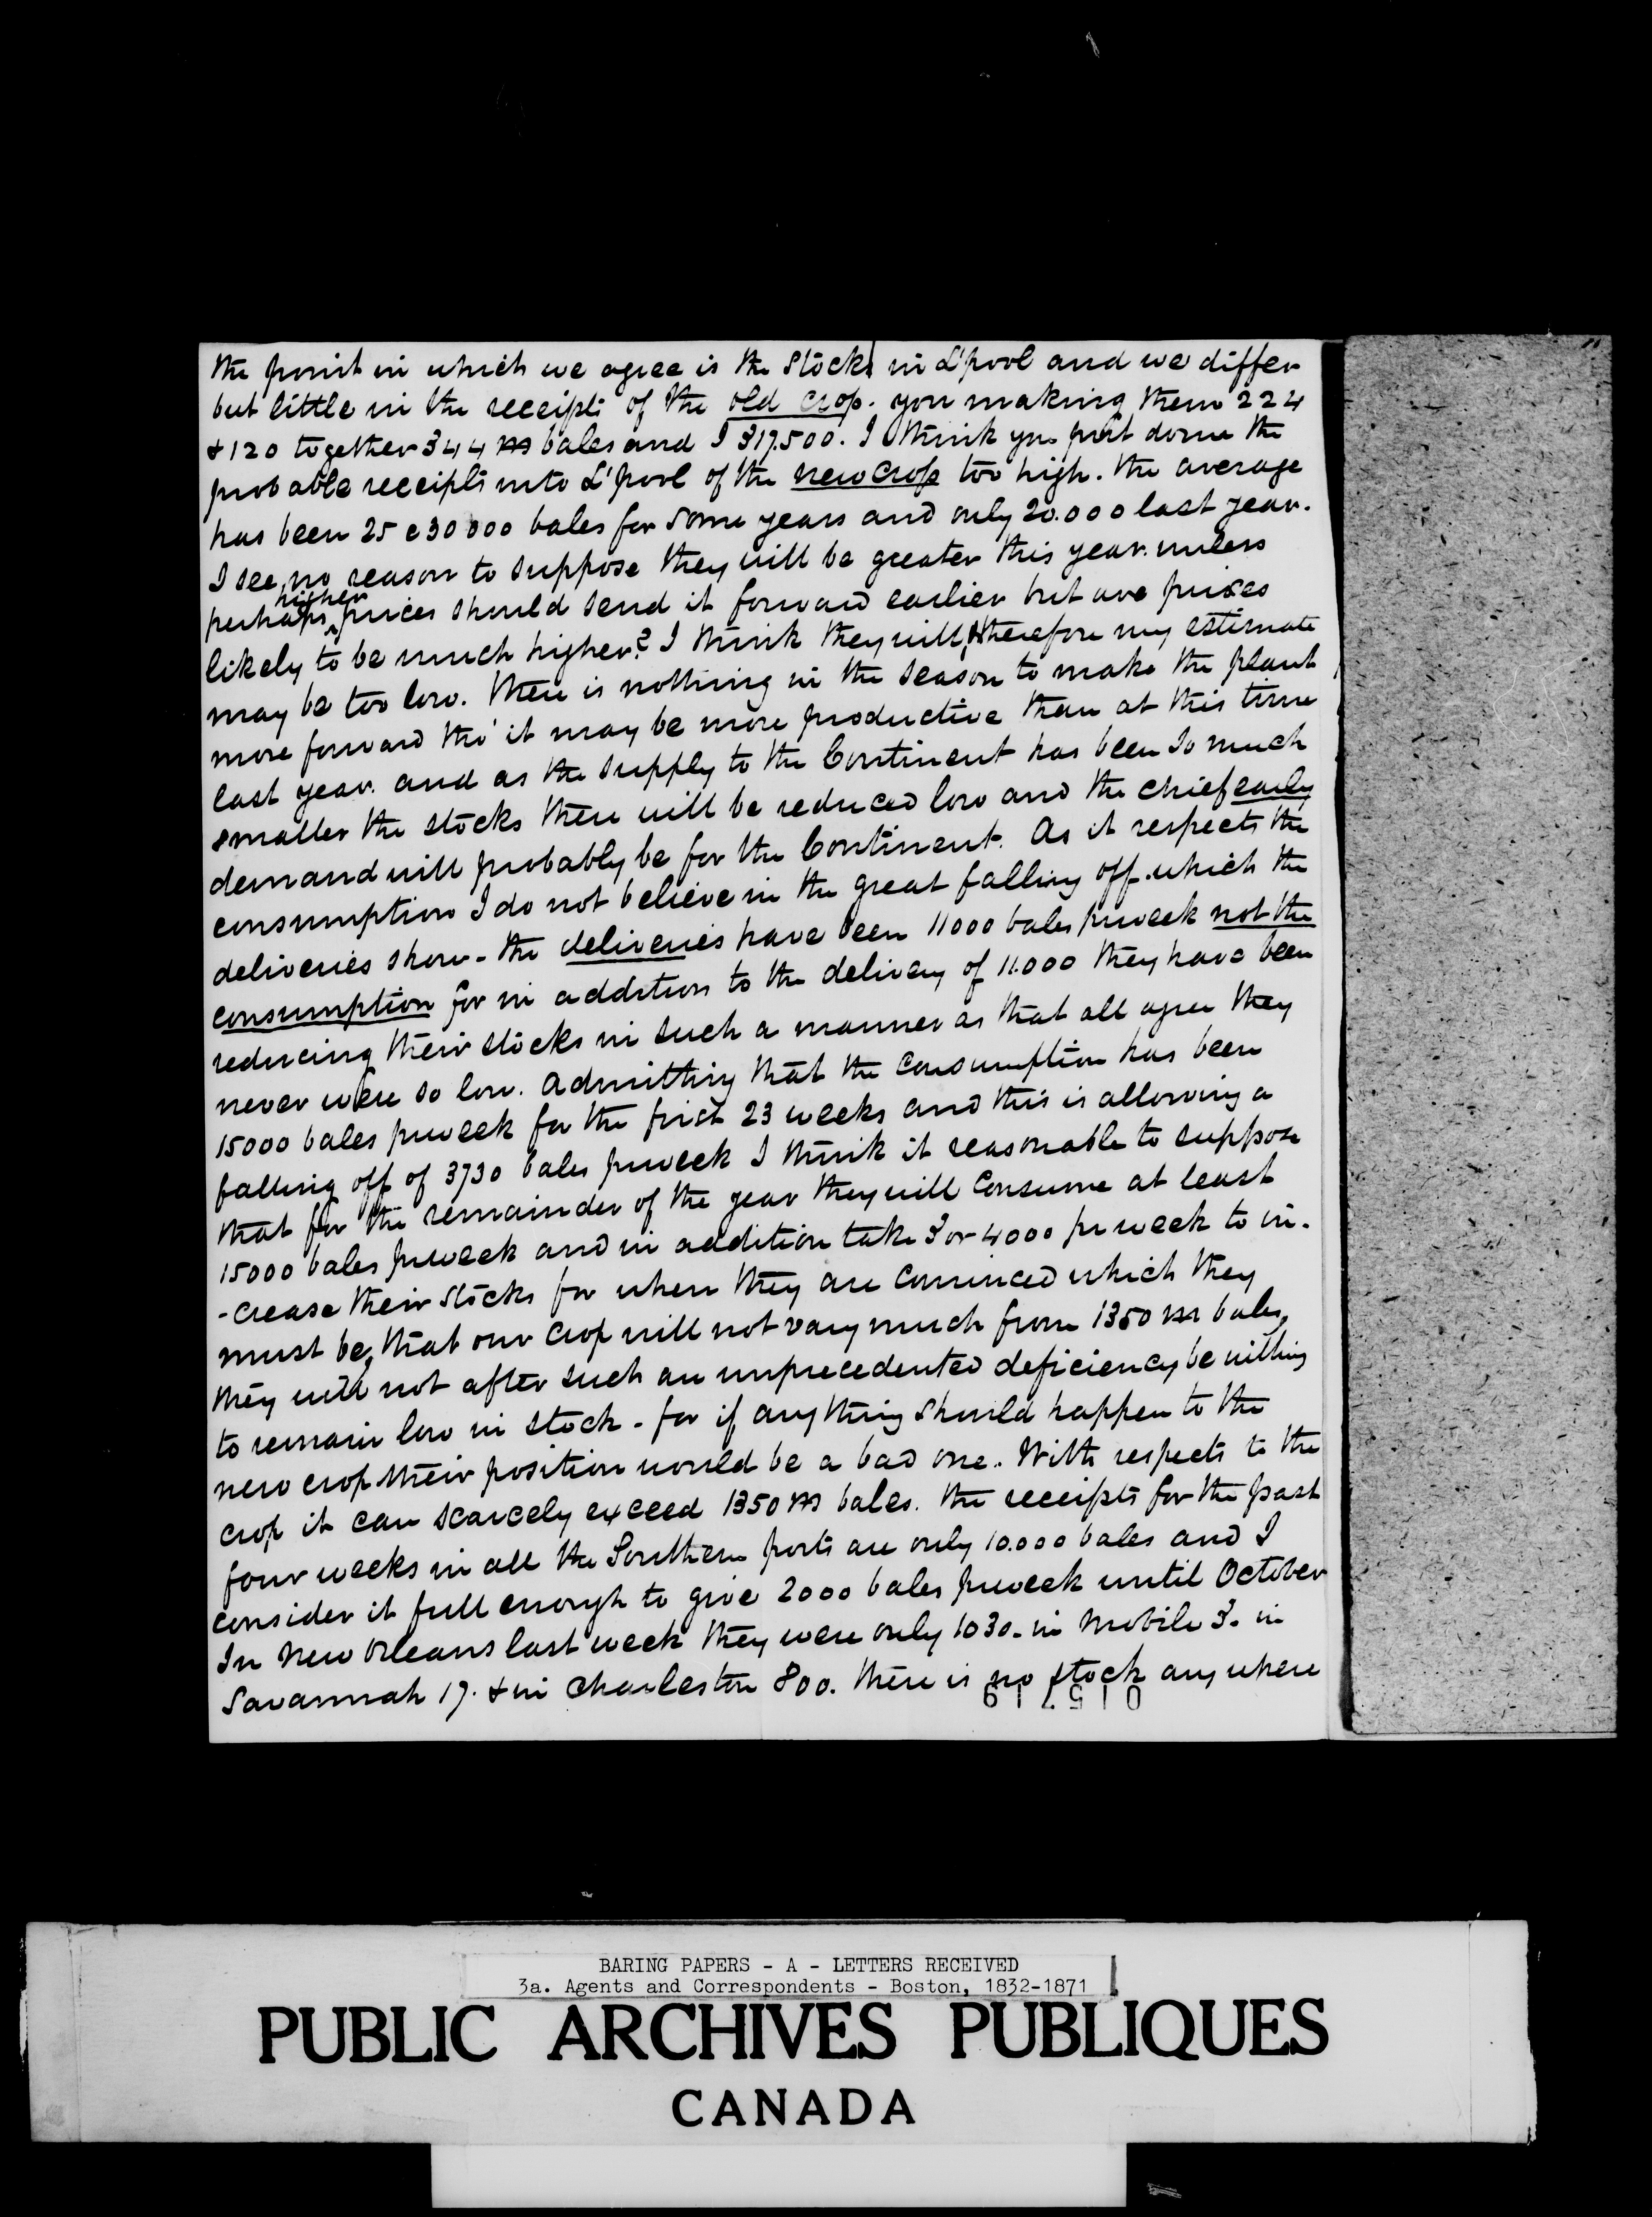 the point in which we agree is the Stocks in L'pool and we differ
but little in the receipts of the old crop. you making them 224
& 120 together 344 m bales and I 317.500. I think you put down the
probable receipts into L'pool of the new crop too high. the average
has been 25 @ 30 000 bales for some years and only 20.000 last year.
I see no reason to suppose they will be greater this year. unless
higher
perhaps prices should send it forward earlier but are prices
likely to be much higher? I think they will, therefore my estimate
may be too low. there is nothing in the season to make the plant
more forward tho' it may be more productive than at this time
last year. and as the supply to the Continent has been so much
smaller the stocks there will be reduced low and the chief early
demand will probably be for the Continent. As it respects the
consumption I do not believe in the great falling off which the
deliveries show - the deliveries have been 11000 bales pr week not the
consumption for in addition to the delivery of 11.000 they have been
reducing their stocks in such a manner as that all agree they
never were so low. Admitting that the Consumption has been
15000 bales pr week for the first 23 weeks and this is allowing a
falling off of 3730 bales pr week I think it reasonable to suppose
that for the remainder of the year they will Consume at least
15000 bales pr week and in addition take 3 or 4000 pr week to in-
-crease their stocks for when they are Convinced which they
must be, that our Crop will not vary much from 1350 m bales,
they will not after such an unprecedented deficiency be willing
to remain low in stock - for if any thing should happen to the
new crop their position would be a bad one. With respects to the
crop it can scarcely exceed 1350 m bales. the receipts for the past
four weeks in all the Southern ports are only 10.000 bales and I
consider it full enough to give 2000 bales pr week until October
In New Orleans last week they were only 1030 - in Mobile 3. in
Savannah 17. & in Charleston 800. there is no stock any where
015719
BARING PAPERS - A - LETTERS RECEIVED
3a. Agents and Correspondents - Boston, 1832-1871
PUBLIC ARCHIVES PUBLIQUES
CANADA